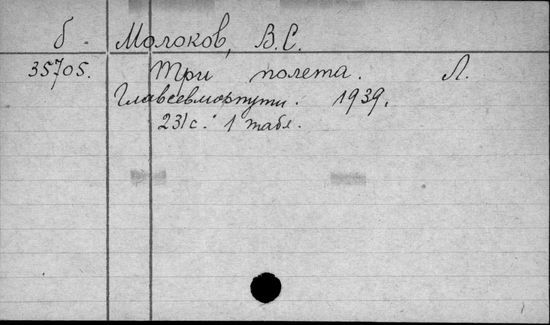 б. Молоков, В.С.
35705. Три полета. Л.
Главсевморпути. 1939.
231с. 1 табл.